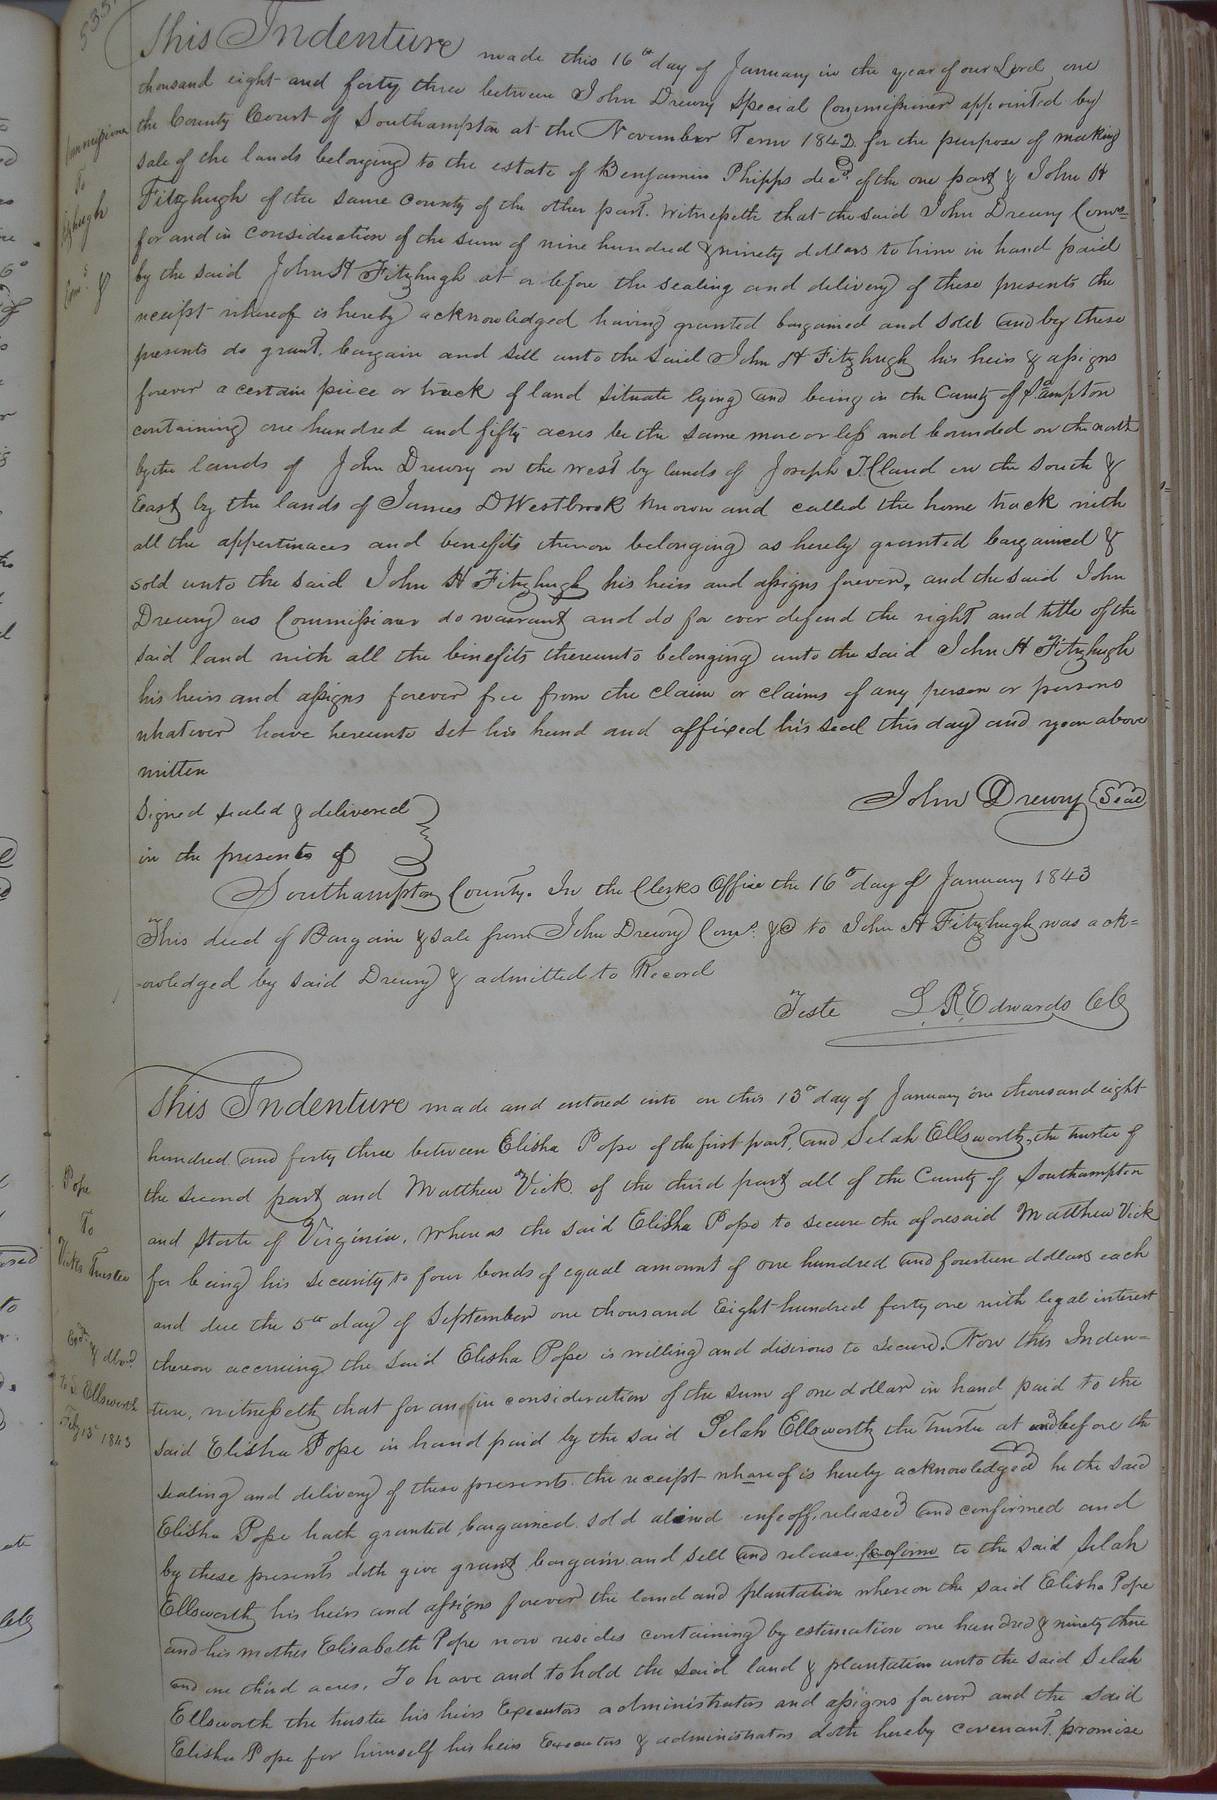 535
This Indenture made this 16th day of January in the year of our Lord one
thousand eight and forty three between John Drewry Special Commissioner appointed by
the County Court of Southampton at the November Term 1842 for the purpose of making
sale of the lands belonging to the estate of Benjamin Phipps decd. of the one part & John H
Fitzhugh of the same county of the other part. Witnesseth that the said John Drewry Comr.
for and in consideration of the sum of nine hundred & ninety dollars to him in hand paid
by the said John H Fitzhugh at or before the sealing and delivery of these presents the
receipt whereof is hereby acknowledged having granted bargained and sold and by these
presents do grant. bargain and sell unto the said John H Fitzhugh his heirs & assigns
forever a certain piece or track of land situate lying and being in the County of S.ampton
containing one hundred and fifty acres be the same more or less and bounded on the north
by the lands of John Drewry on the west by lands of Joseph T Claud on the south &
East by the lands of James D Westbrook known and called the home track with
all the appertinaces and benefits thereon belonging as hereby granted bargained &
sold unto the said John H Fitzhugh his heirs and assigns forever, and the said John
Drewry as Commissioner do warrant and do for ever defend the right and title of the
said land with all the benefits thereunto belonging unto the said John H Fitzhugh
his heirs and assigns forever free from the claim or claims of any person or persons
whatever have hereunto set his hand and affixed his seal this day and year above
written
John Drewry Seal
Signed sealed & delivered
in the presents of
Southampton County. In the Clerks Office the 16th day of January 1843
This deed of Bargain & sale from John Drewry Comr. &C to John H Fitzhugh was ack=
-owledged by said Drewry & admitted to Record
Teste L. R. Edwards CC
This Indenture made and entered into on this 13th day of January one thousand eight
hundred and forty three between Elisha Pope of the first part, and Selah Ellsworth the trustee of
the second part and Matthew Vick of the third part all of the County of Southampton
and State of Virginia, Whereas the said Elisha Pope to secure the aforesaid Matthew Vick
for being his security to four bonds of equal amount of one hundred and fourteen dollars each
and due the 5th day of September one thousand Eight hundred forty one with legal interest
thereon accruing the said Elisha Pope is willing and disirous to secure. Now this Inden=
ture, witnesseth that for and in consideration of the sum of one dollar in hand paid to the
said Elisha Pope in hand paid by the said Selah Ellsworth the Trustee at and before the
sealing and delivery of these presents the receipt whareof is hereby acknowledged he the said
Elisha Pope hath granted, bargained. sold aliened enfeoff, released and confirmed and
by these presents doth give grant bargain and sell and release to the said Selah
Ellsworth his heirs and assigns forever the land and plantation whereon the said Elisha Pope
and his mother Elisabeth Pope now resides containing by estimation one hundred & ninety three
and one third acres. To have and to hold the said land & plantation unto the said Selah
Ellsworth the trustee his heirs Executors administrators and assigns forever and the said
Elisha Pope for himself his heirs Executors & administrators doth hereby covenant, promise
To
Pope
To
Vicks Trustee
to S. Ellsworth
1843